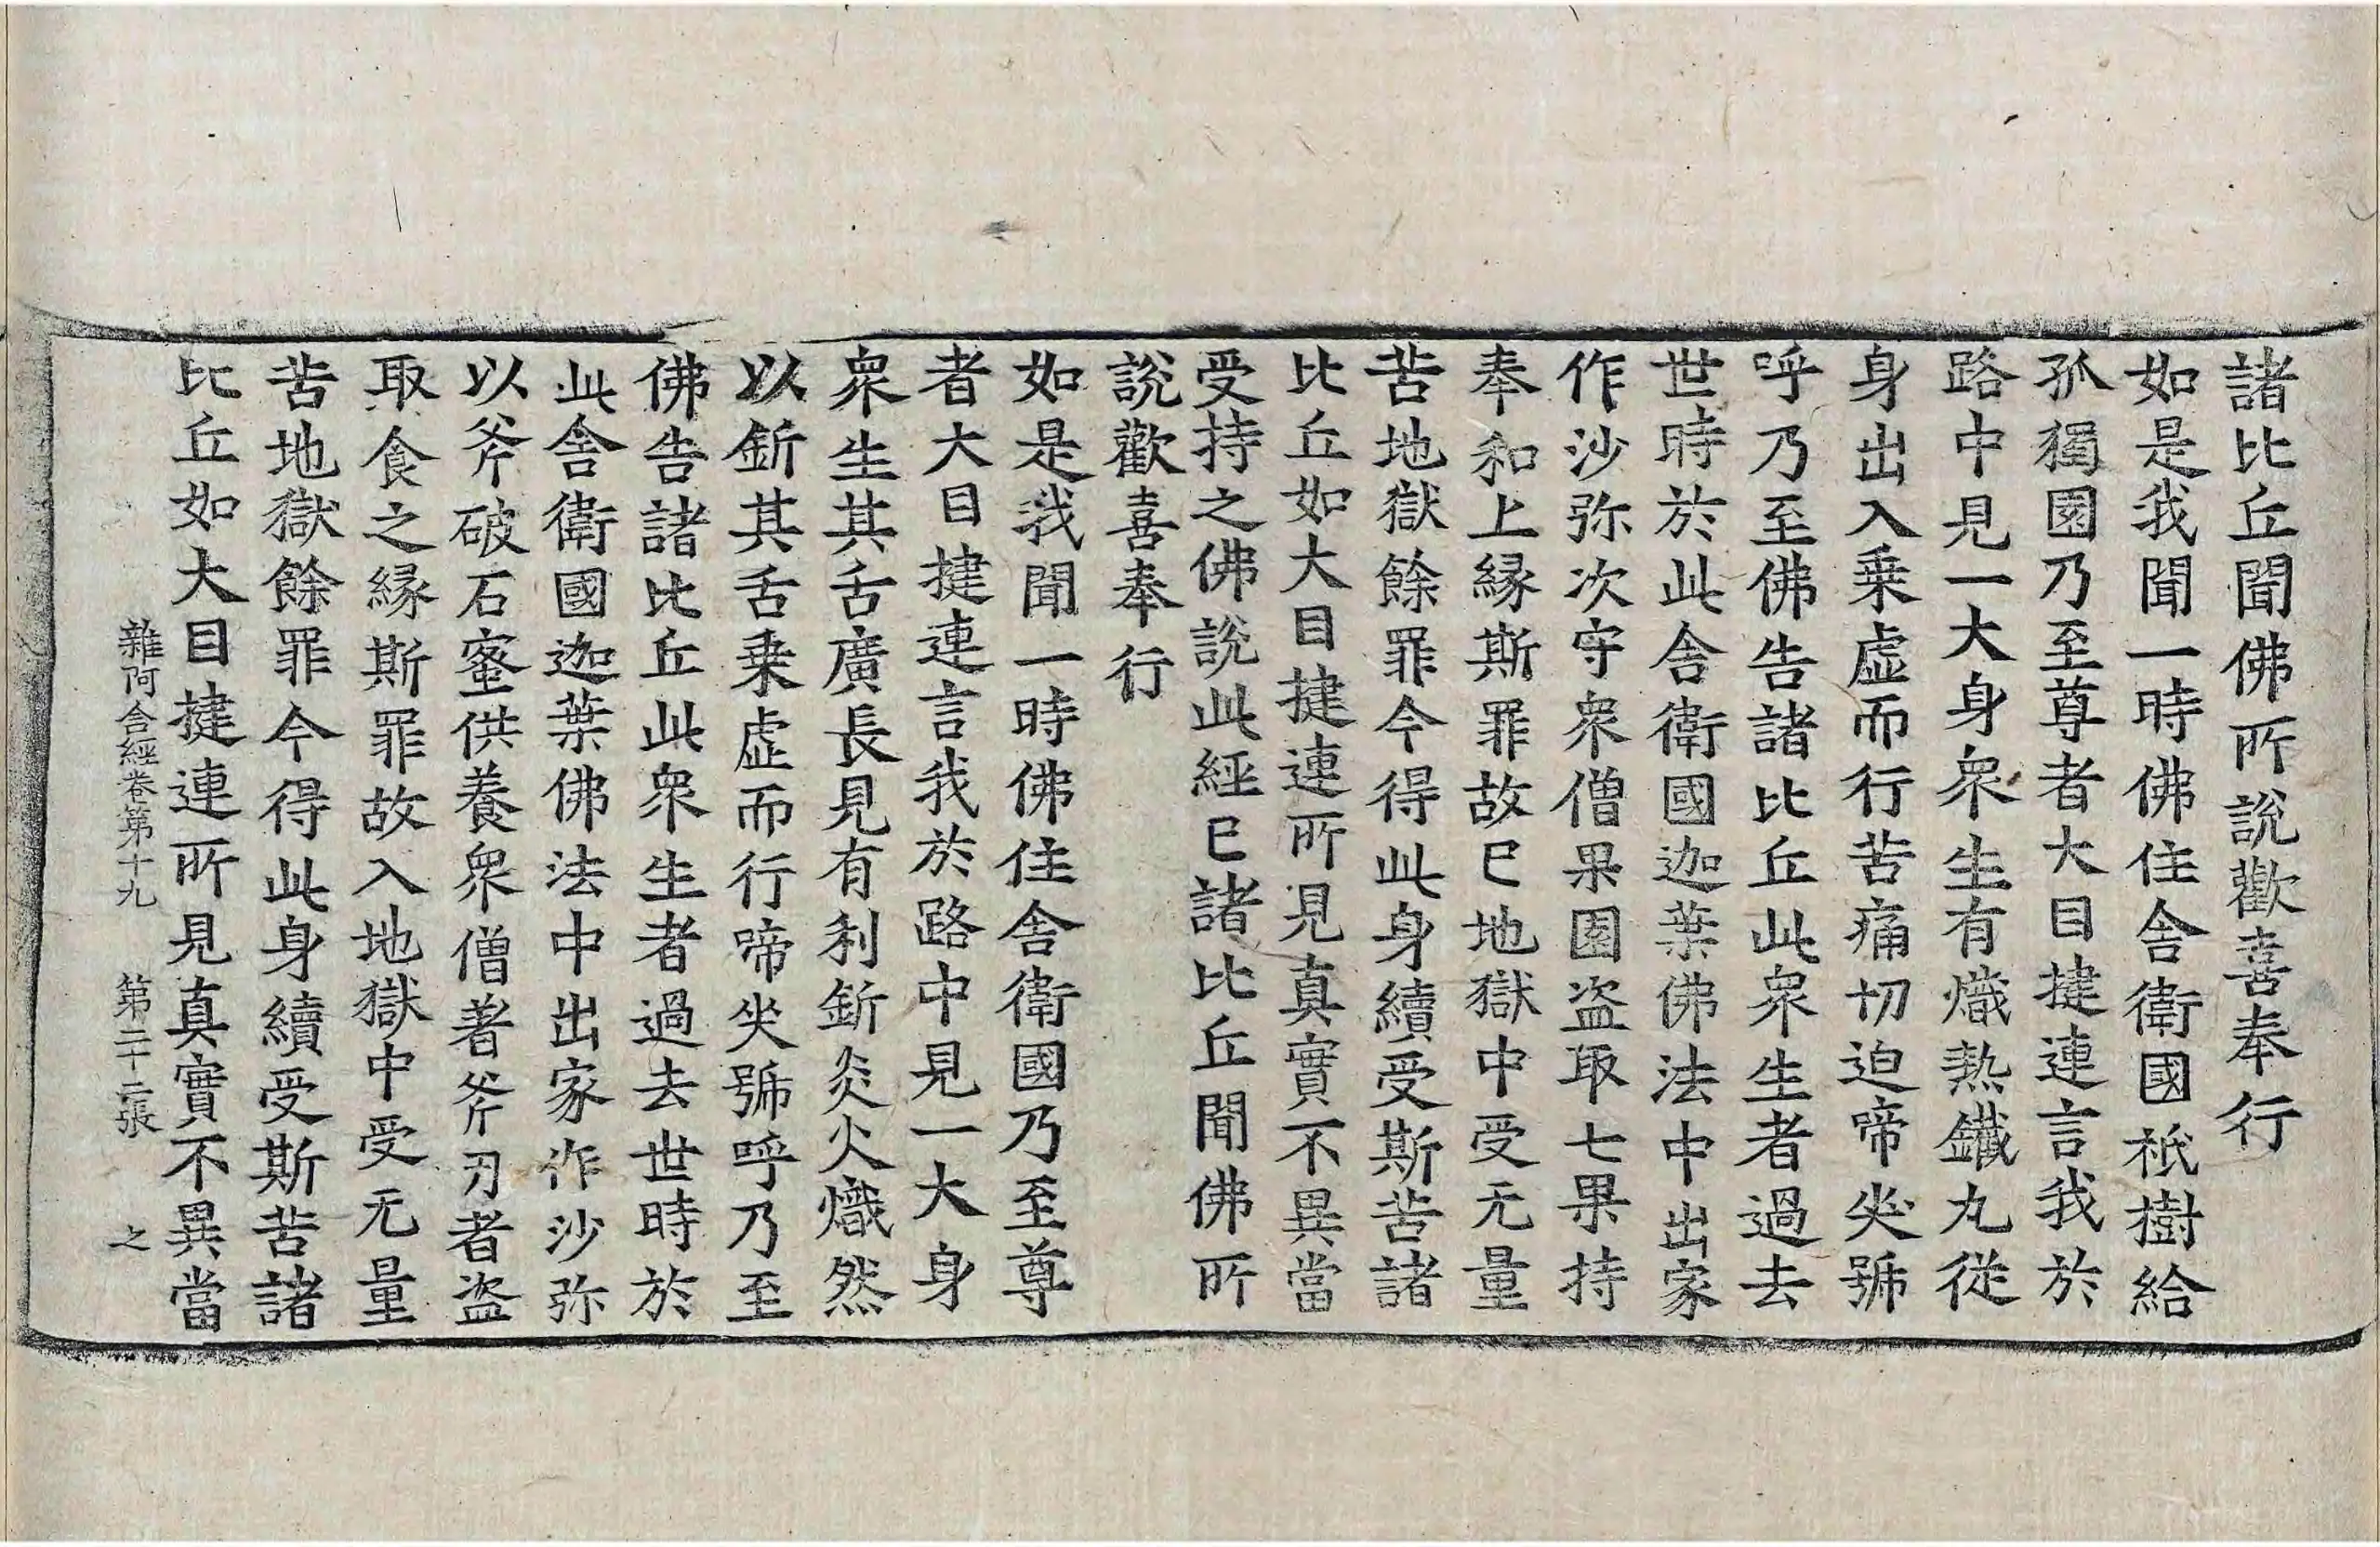 諸比丘聞佛所說歡喜奉行
如是我聞一時佛住舍衛國祇樹給
孤獨園乃至尊者大目揵連言我於
路中見一大身衆生有熾熱鐵丸從
身出入乗虛而行苦痛切迫啼哭號
呼乃至佛告諸比丘此衆生者過去
世時於此舍衛國迦葉佛法中出家
作沙弥次守衆僧果園盜取七果持
奉和上縁斯罪故已地獄中受无量
苦地獄餘罪今得此身續受斯苦諸
比丘如大目揵連所見真實不異當
受持之佛說此經已諸比丘聞佛所
說歡喜奉行
如是我聞一時佛住舍衛國乃至尊
者大目揵連言我於路中見一大身
衆生其舌廣長見有利釿炎火熾然
以釿其舌乗虛而行啼哭號呼乃至
佛告諸比丘此衆生者過去世時於
此舍衛國迦葉佛法中出家作沙弥
以斧破石蜜供養衆僧著斧刃者盜
取食之縁斯罪故入地獄中受无量
苦地獄餘罪今得此身續受斯苦諸
比丘如大目揵連所見真實不異當
雜阿含經卷第十九 第二十二張 之